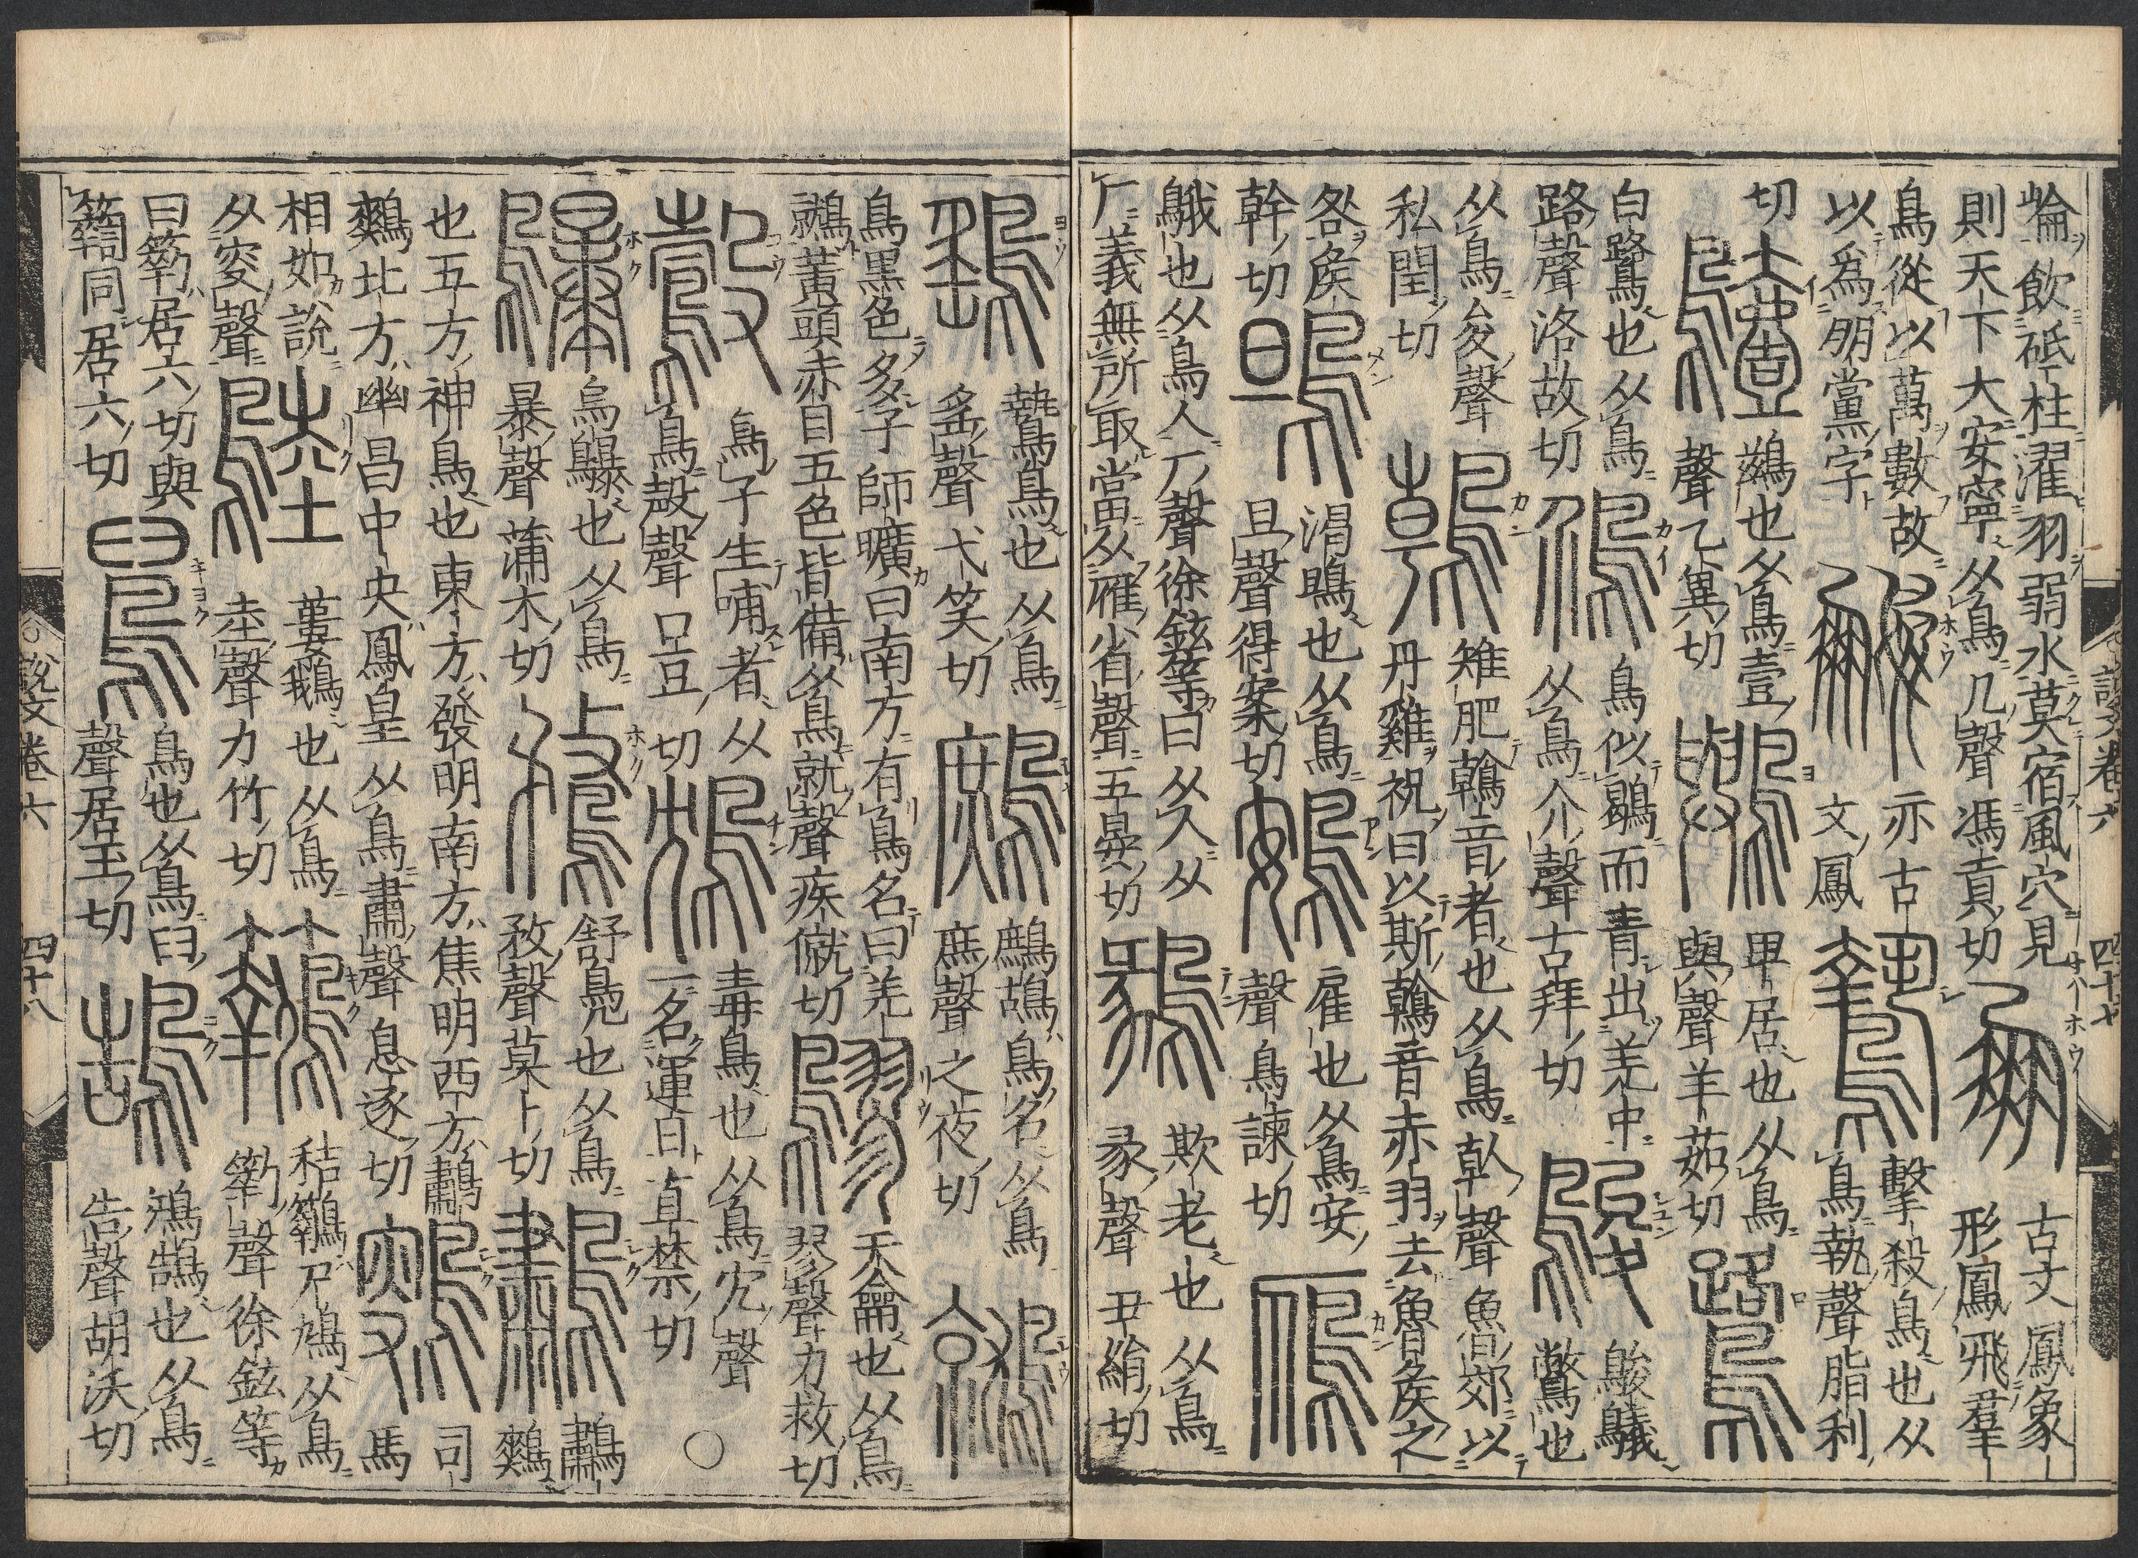 崘飲砥柱濯羽弱水莫宿風穴見
則天下大安寧从鳥凡聲馮貢切
朋
古文鳳象
形鳳飛羣
鳥從以萬數故
以爲朋黨字
鵬
亦古
文鳳
鷙
擊殺鳥也从
鳥執聲脂利
切
鷧
鷀也从鳥壹
聲乙冀切
鸒
卑居也从鳥
與聲羊茹切
鷺
白鷺也从鳥
路聲洛故切
鳥似鶡而青出羌中
从鳥介聲古拜切
鵔
鵔鸃
鷩也
从鳥夋聲
私閏切
鶾
雉肥鶾音者也从鳥倝聲魯郊以
丹雞祝曰以斯鶾音赤羽去魯矦之
咎矦
幹切
鴠
渴鴠也从鳥
旦聲得案切
鴳
雇也从鳥安
聲烏諫切
鴈
䳘也从鳥人厂聲徐鉉等曰从人从
厂義無所取當从雁省聲五晏切
鶨
欺老也从鳥
彖聲尹絹切
說文卷六 四十七
鷂
鷙鳥也从鳥
䍃聲弋笑切
鷓
鷓鴣鳥名从鳥
庶聲之夜切
鷲
鳥黑色多子師曠曰南方有鳥名曰羌
鷲黃頭赤目五色皆備从鳥就聲疾僦切
鷚
天龠也从鳥
翏聲力救切
鷇
鳥子生哺者从
鳥㱿聲口豆切
鴆
毒鳥也从鳥冘聲
一名運日直禁切
○
鸔
烏鸔也从鳥
暴聲蒲木切
鶩
舒鳧也从鳥
敄聲莫卜切
鷫
鷫
鷞
也五方神鳥也東方發明南方焦明西方鷫
鷞北方幽昌中央鳳皇从鳥肅聲息逐切
司
馬
相如說
从叜聲
鵱
蔞鵝也从鳥
坴聲力竹切
秸鶵尸鳩从鳥
𥷚聲徐鉉等
曰𥷚居六切與
䉤同居六切
鳥也从鳥臼
聲居玉切
鵠
鴻鵠也从鳥
告聲胡沃切
說文卷六 四十八